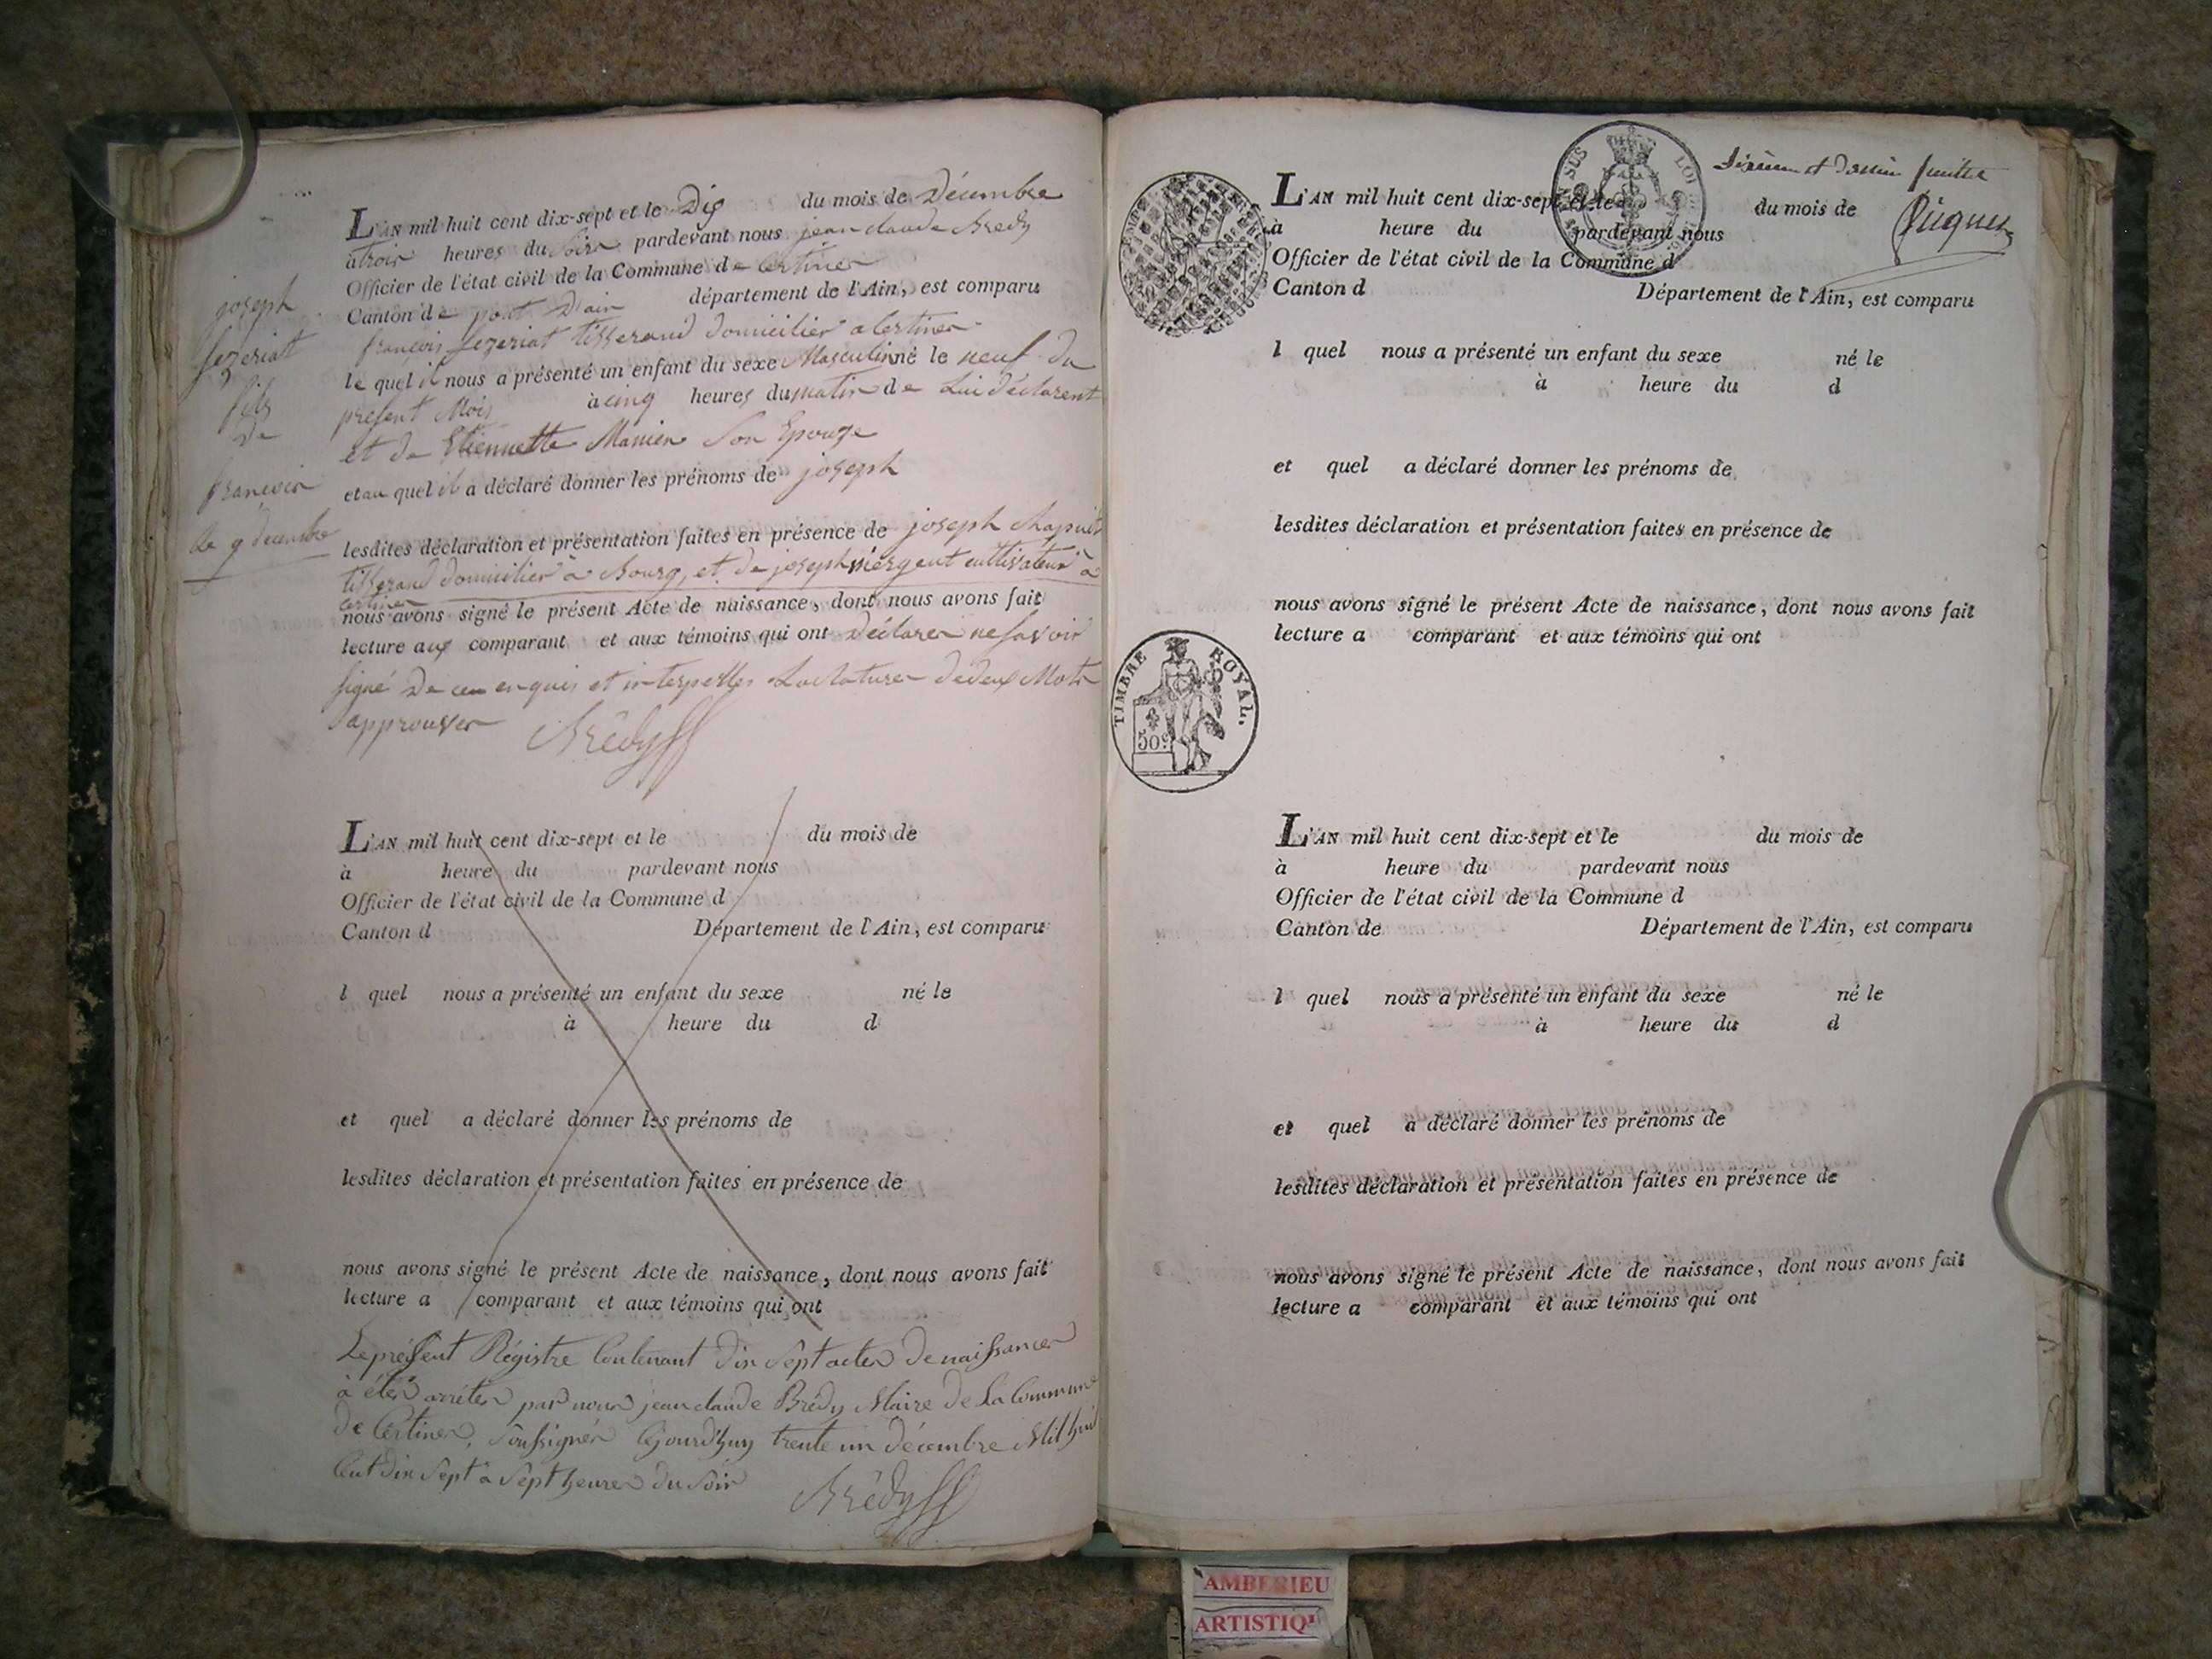 L'AN mil huit cent dix-sept et le Dix du mois de Décembre
à trois heures du soir pardevant nous jean claude Bredy
Officier de l'état civil de la Commune de Certines
Canton de pont D'ain département de l'Ain, est comparu
françois sezeriat tisserand domicilier a Certines
le quel il nous a présenté un enfant du sexe Masculin né le neuf du
présent Mois à cinq heures du matin de Lui déclarent
et de Etiennette Manien Son Epouze
et au quel il a déclaré donner les prénoms de joseph
lesdites déclaration et présentation faites en présence de joseph chapuis
tisserand domicilier à Bourg, et de joseph niergent cultivateur à
Certines
nous avons signé le présent Acte de naissance, dont nous avons fait
lecture aux comparant et aux témoins qui ont déclarer ne savoir
signé de ceu enquis et interpelles La Rature de deux Mots
approuver Bredy
joseph
sezeriat
fils
de
francois
Le 9 decembre
L'AN mil huit cent dix-sept et le du mois de
à heure du pardevant nous
Officier de l'état civil de la Commune d
Canton d Département de l'Ain, est comparu
l quel nous a présenté un enfant du sexe né le
à heure du d
et quel a déclaré donner les prénoms de
lesdites déclaration et présentation faites en présence de
nous avons signé le présent Acte de naissance, dont nous avons fait
lecture a comparant et aux témoins qui ont
Le présent Régistre Contenant dix Sept actes de naissances
à étés arrêtés par nous jean claude Brédy Maire de La Commune
de Certines, Soussignés Cejourd'huy trente un décembre Mil huit
Cent dix Sept à Sept heures du Soir Brédy
L'AN mil huit cent dix-sept et le du mois de
à heure du pardevant nous
Officier de l'état civil de la Commune d
Canton d Département de l'Ain, est comparu
l quel nous a présenté un enfant du sexe né le
à heure du d
et quel a déclaré donner les prénoms de
lesdites déclaration et présentation faites en présence de
nous avons signé le présent Acte de naissance, dont nous avons fait
lecture a comparant et aux témoins qui ont
TIMBRE ROYAL.
50c
L'AN mil huit cent dix-sept et le du mois de
à heure du pardevant nous
Officier de l'état civil de la Commune d
Canton de Département de l'Ain, est comparu
l quel nous a présenté un enfant du sexe né le
à heure du d
et quel a déclaré donner les prénoms de
lesdites déclaration et présentation faites en présence de
nous avons signé le présent Acte de naissance, dont nous avons fait
lecture a comparant et aux témoins qui ont
AMBERIEU
ARTISTIQ